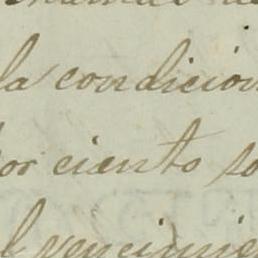 la condicion
or ciento so
l vencimie